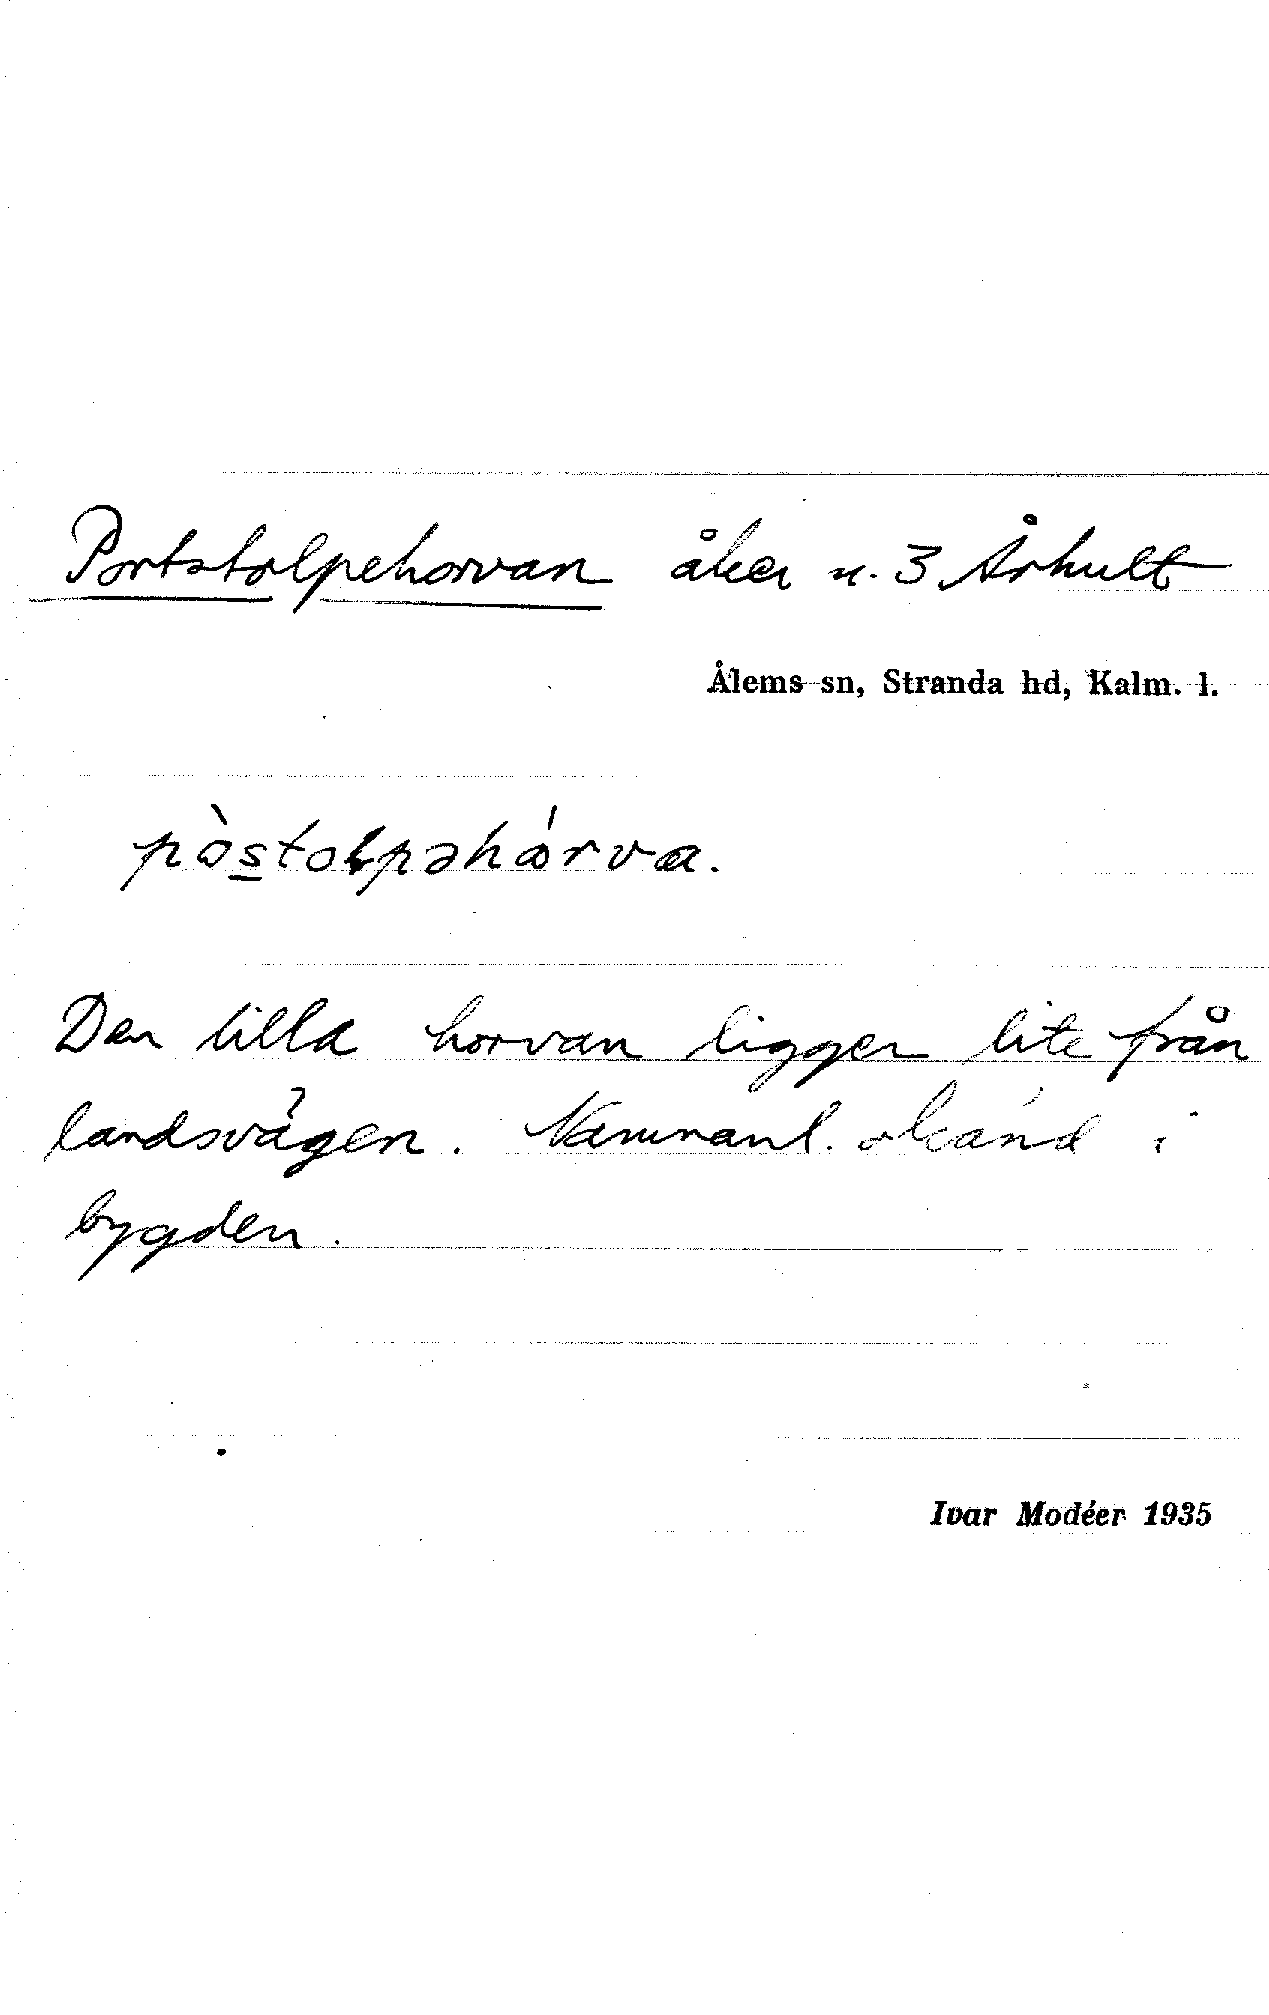 Portstolpehorvan åker n. 3 Århult
Ålems sn, Stranda hd, Kalm. l.
pòstolpəhórva.
Den lilla horvan ligger lite från
landsvägen. Namnanl. okänd i
bygden.
Ivar Modéer 1935